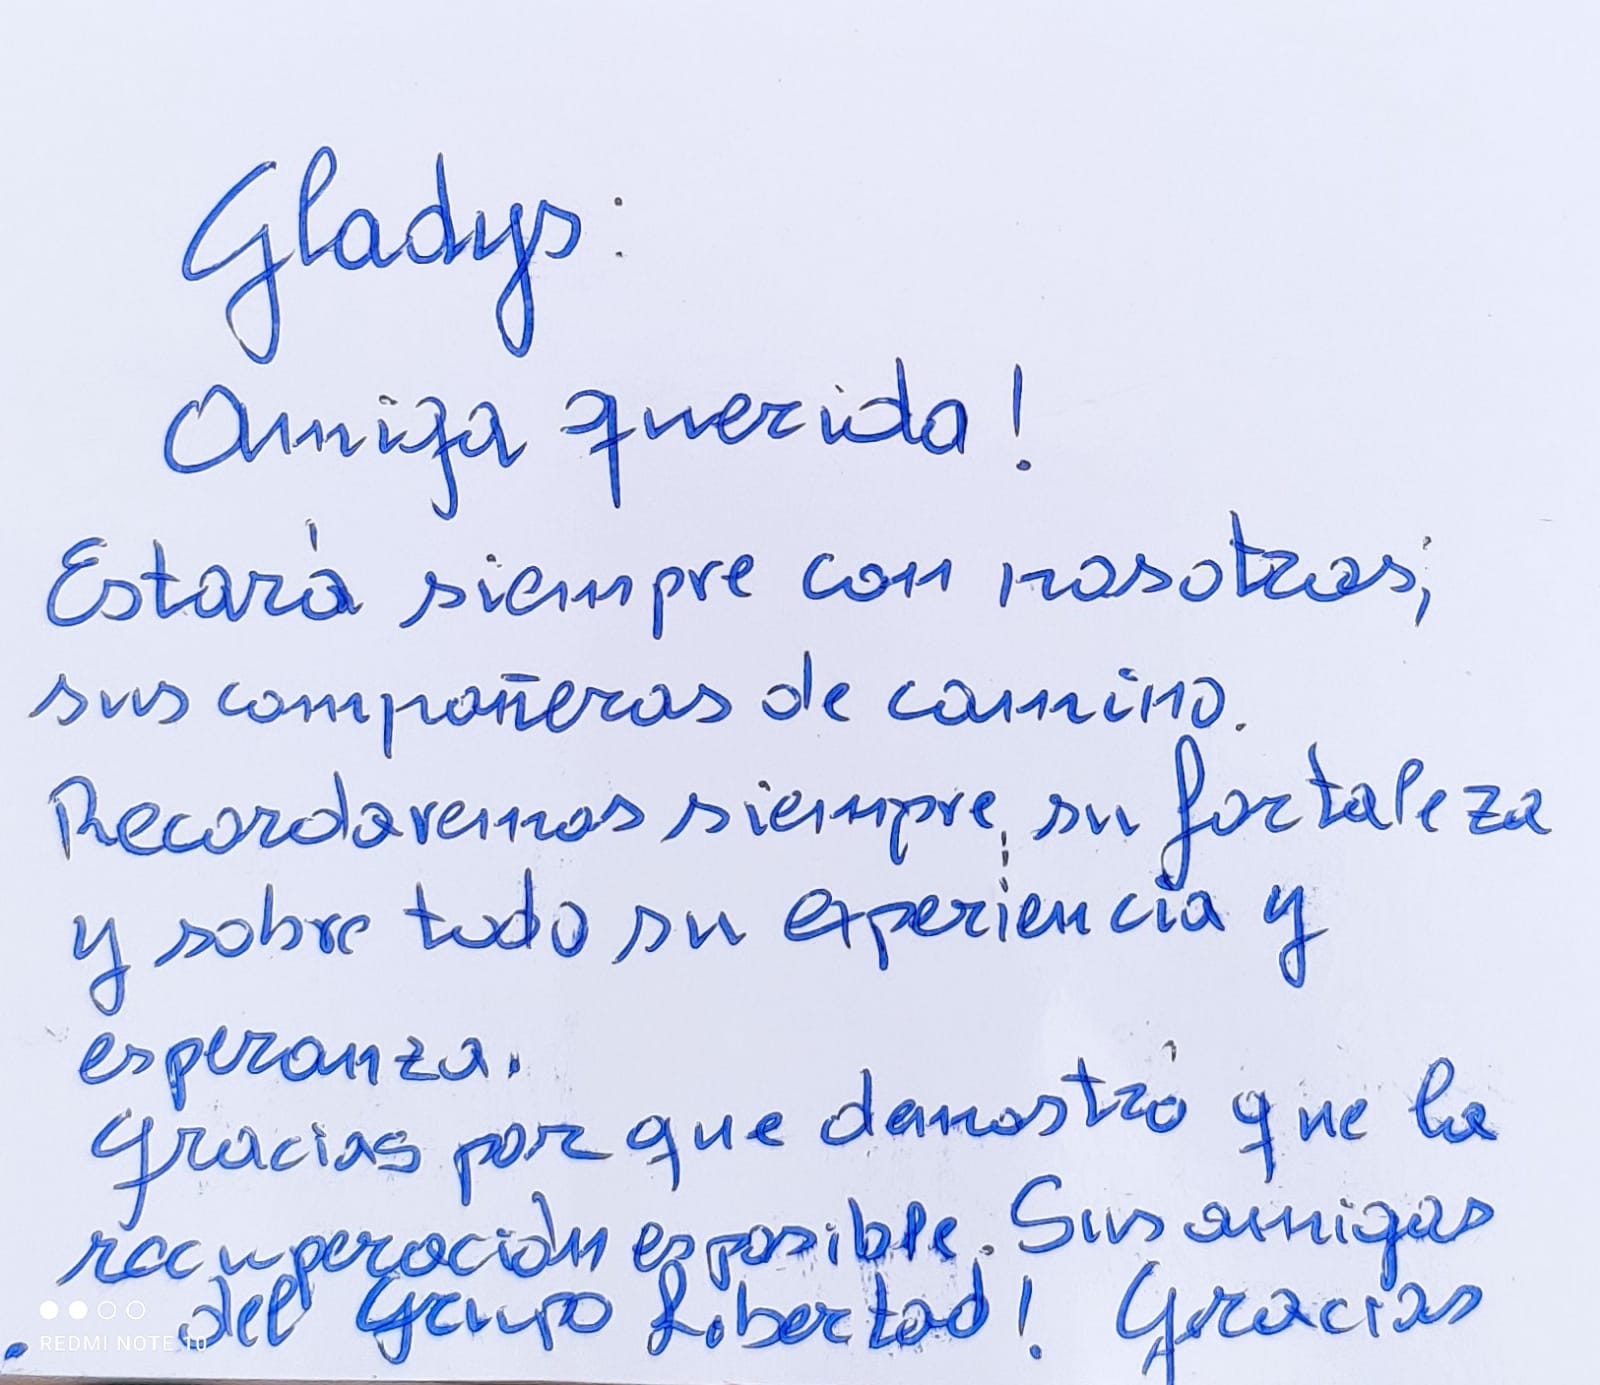 Gladys:
Amiga querida!
Estará siempre con nosotras;
sus compañeras de camino.
Recordaremos siempre, su fortaleza
y sobre todo su experiencia y
esperanza.
Gracias por que demostró que la
recuperación es posible. Sus amigas
del Grupo Libertad! Gracias
REDMI NOTE 10